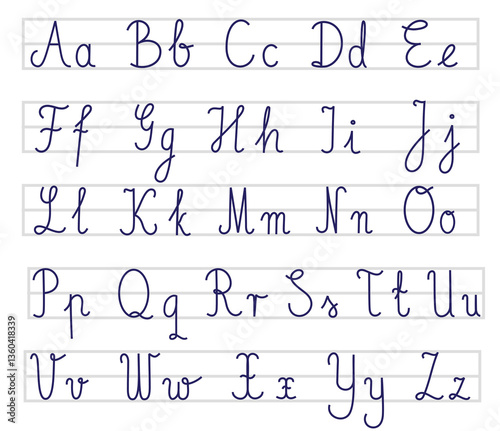 Aa Bb Cc Dd Ee
Ff Gg Hh Ii Jj
Ll Kk Mm Nn Oo
Pp Qq Rr Ss Tt Uu
Vv Ww Xx Yy Zz
Adobe Stock | #1360418339